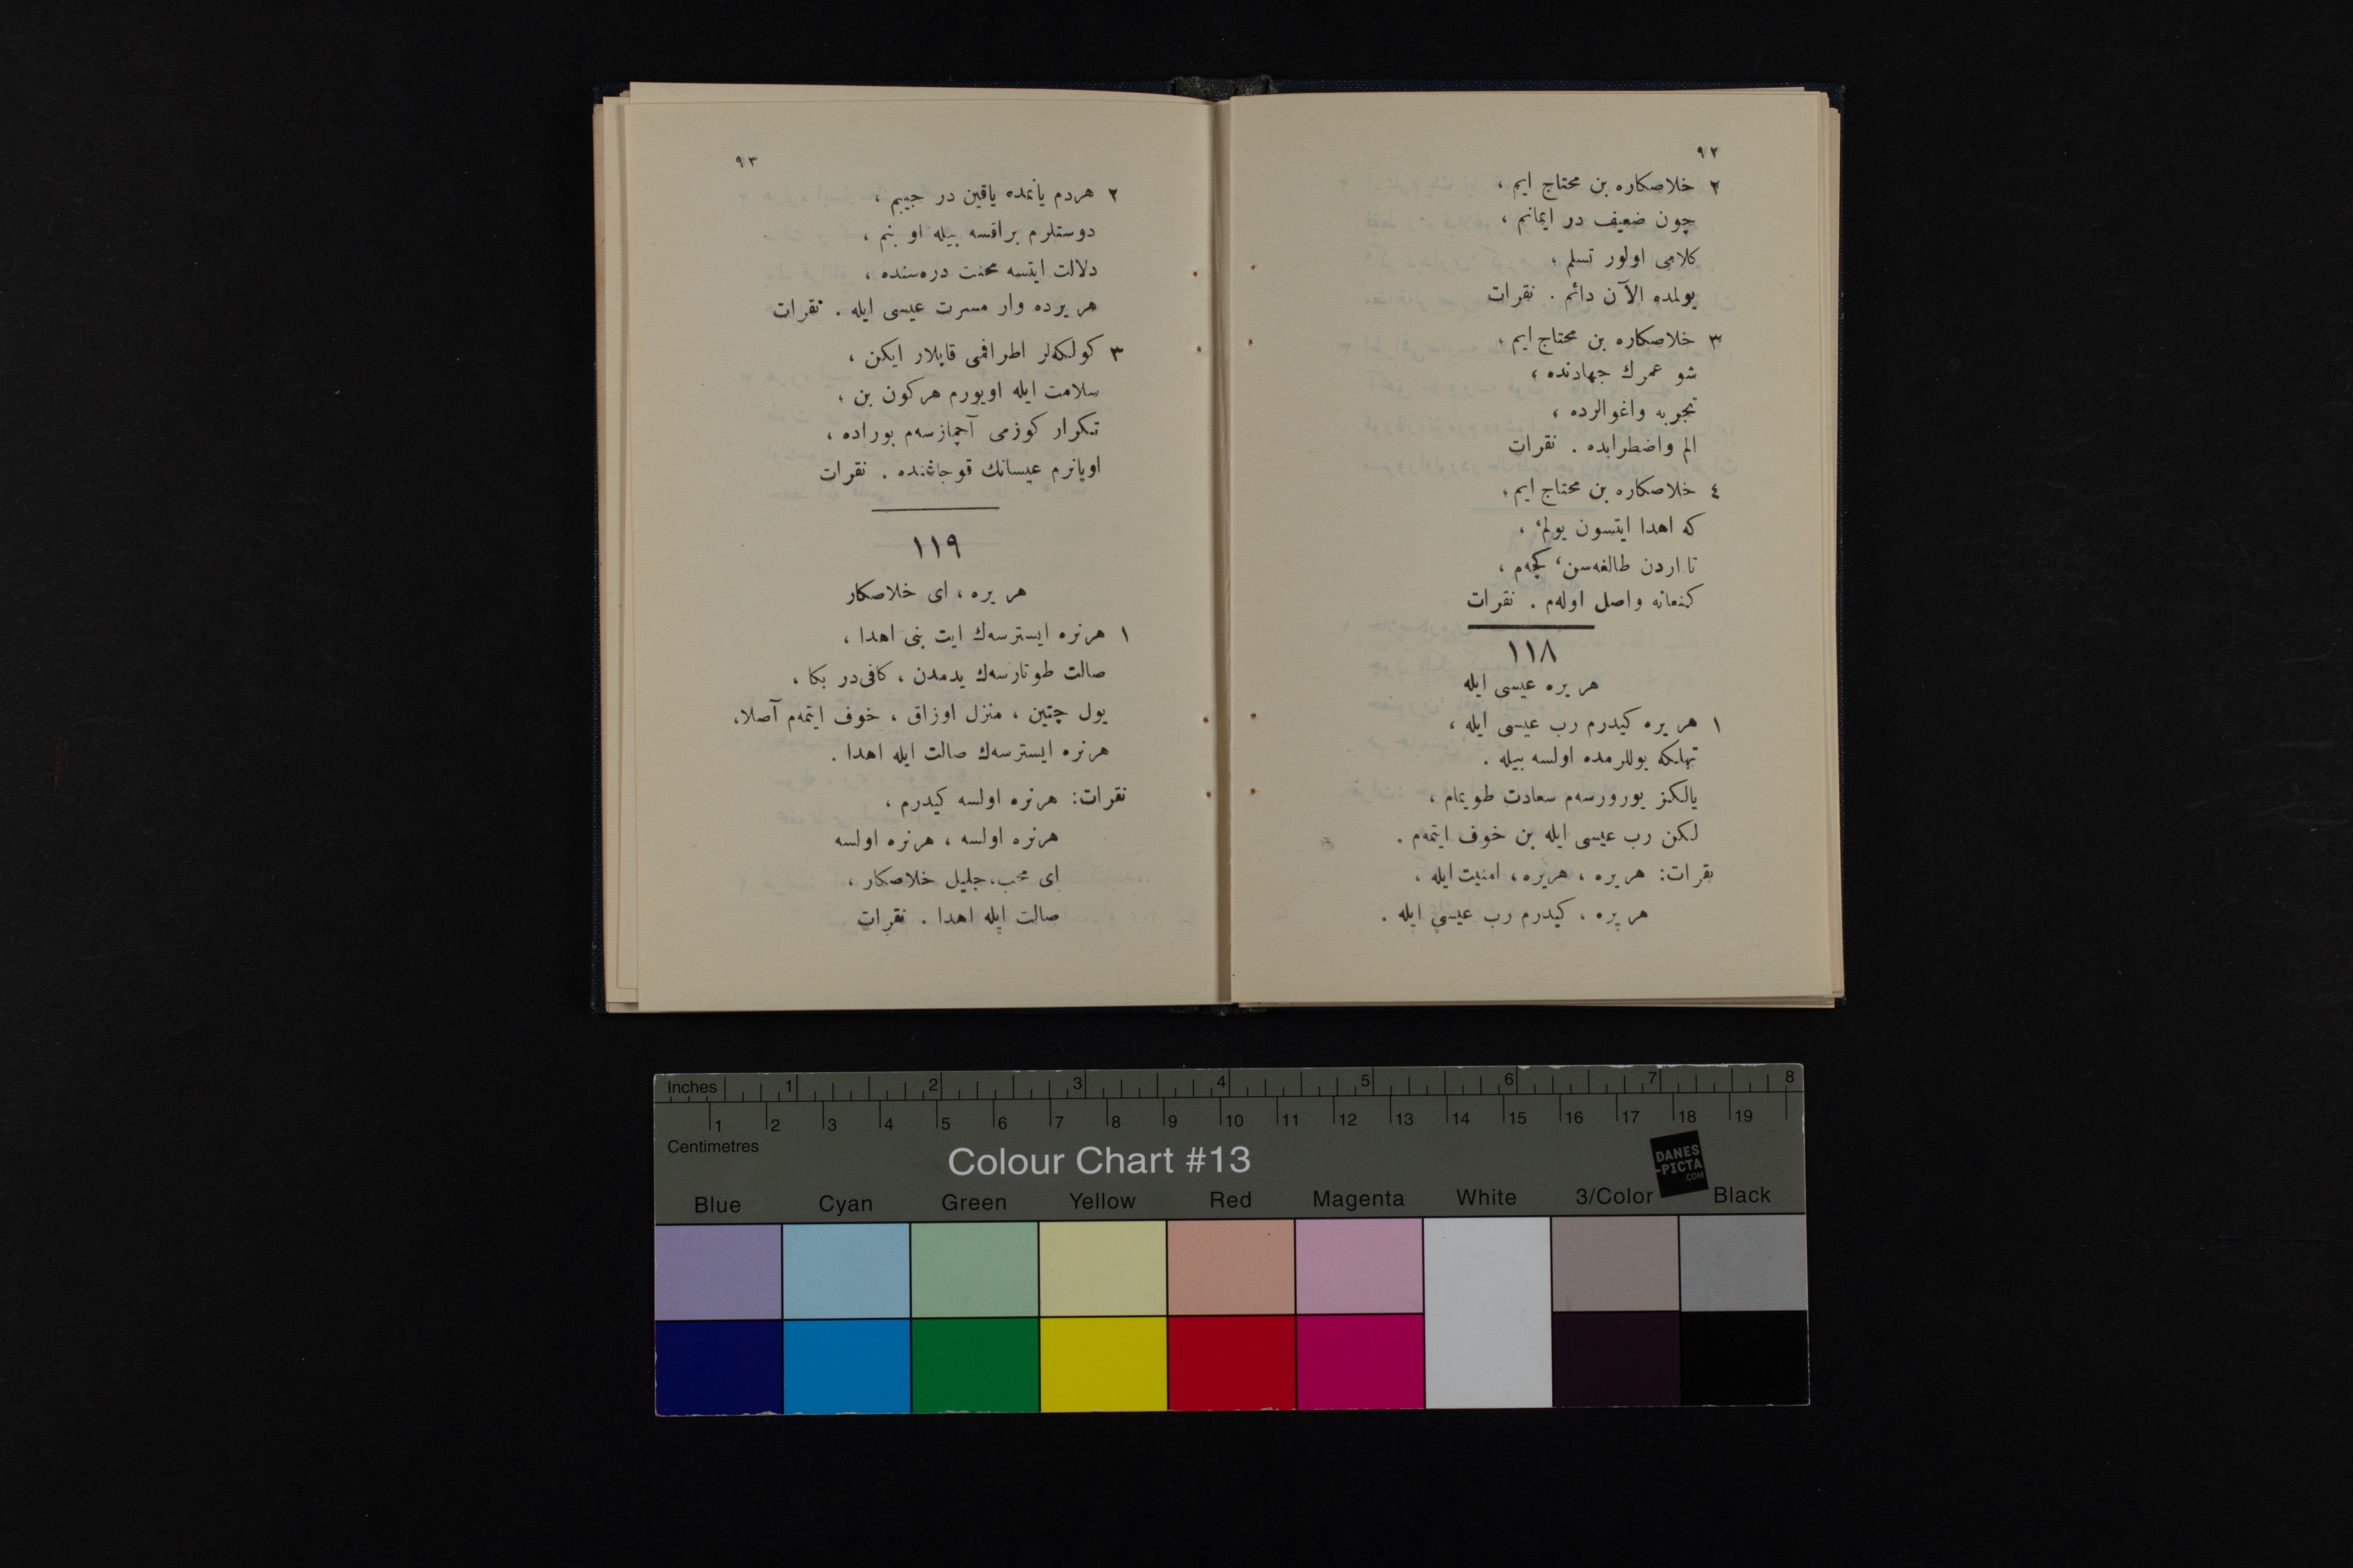 ٩٢
٢ خلاصكاره بن محتاج ايم ،
چون ضعيف در ايمانم ،
كلامى اولور تسلم ؛
يولمده الآن دائم . نقرات
٣ خلاصكاره بن محتاج ايم ،
شو عمرك جهادنده ،
تجربه واغوالرده ،
الم واضطرابده . نقرات
٤ خلاصكاره بن محتاج ايم ؛
كه اهدا ايتسون يولمʼ ،
تا اردن طالغه‌سنʼ كچه‌م ،
كنعانه واصل اوله‌م . نقرات
١١٨
هر يره عيسى ايله
١ هر يره كيدرم رب عيسى ايله ،
تهلكه يوللرمده اولسه بيله .
يالكز يورورسه‌م سعادت طويمام ،
لكن رب عيسى ايله بن خوف ايتمه‌م .
نقرات: هر يره ، هريره ، امنيت ايله ،
هر يره ، كيدرم رب عيسى ايله .
٩٣
٢ هردم يانمده ياقين در حبيبم ،
دوستلرم براقسه بيله او بنم ،
دلالت ايتسه محنت دره‌سنده ،
هر يرده وار مسرت عيسى ايله . نقرات
٣ كولكه‌لر اطرافمى قاپلار ايكن ،
سلامت ايله اويورم هركون بن ؛
تكرار كوزمى آچمازسه‌م بوراده ،
اويانرم عيسانك قوجاغنده . نقرات
١١٩
هر يره ، اى خلاصكار
١ هرنره ايسترسه‌ك ايت بنى اهدا ،
صالت طوتارسه‌ك يدمدن ، كافى‌در بكا ،
يول چتين ، منزل اوزاق ، خوف ايتمه‌م آصلا،
هرنره ايسترسه‌ك صالت ايله اهدا .
نقرات: هرنره اولسه كيدرم ،
هرنره اولسه ، هرنره اولسه
اى محب، جليل خلاصكار ،
صالت ايله اهدا . نقرات
Inches 1 2 3 4 5 6 7 8
1 2 3 4 5 6 7 8 9 10 11 12 13 14 15 16 17 18 19
Centimetres
Colour Chart #13
DANES
-PICTA
.COM
Blue Cyan Green Yellow Red Magenta White 3/Color Black